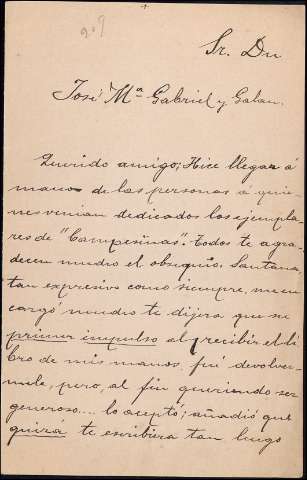 209
Sr. Dn
José Mª Gabriel y Galan.
Querido amigo; Hice llegar á
manos de las personas á quie-
nes venian dedicados los ejempla-
res de "Campesinas". Todos te agra-
decen mucho el obsequio. Santana,
tan expresivo como siempre, me en-
cargó mucho te dijera que su
primer impulso al recibir el li-
bro de mis manos, fué devolver-
mele, pero, al fin queriendo ser
generoso... lo aceptó; añadió que
quizá te escribiera tan luego